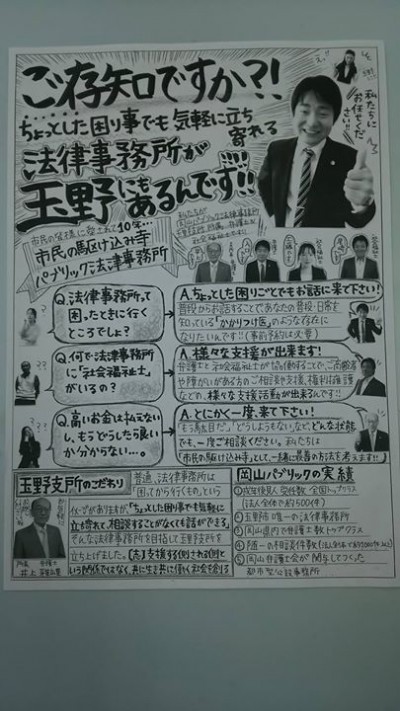 ご存知ですか?!
ちょっとした困り事でも気軽に立ち寄れる
法律事務所が
玉野にもあるんです!!
私たちに
お任せくだ
さい!!
市民の皆様に愛されて10年…
市民の駆け込み寺
パブリック法律事務所
Q.法律事務所って
困ったときに行く
ところでしょ?
A.ちょっとした困りごとでもお話に来て下さい!
普段からお話することであなたの普段・日常を
知っている「かかりつけ医」のような存在に
なりたいんです!!(事前予約は必要)
Q.何で法律事務所
に「社会福祉士」
がいるの?
A.様々な支援が出来ます!
弁護士と社会福祉士が協働することで、ご高齢者
や障がいがある方のご相談や支援、権利擁護
などの、様々な支援活動が出来るんです!!
Q.高いお金は払えない
し、もうどうしたら良い
か分からない…。
A.とにかく一度、来て下さい!
「もう駄目だ。」「どうしようもない。」など、どんな状態
でも、一度ご相談ください。私たちは
「市民の駆け込み寺」として、一緒に最善の方法を考えます!!
玉野支所のこだわり
普通、法律事務所は
「困ってから行くもの」という
イメージがありますが、「ちょっとした困り事でも気軽に
立ち寄れて相談することがなくても話ができる」
そんな法律事務所を目指して玉野支所を
立ち上げました。「支援する側・される側」と
いう関係ではなく、共に生き共に働く社会を創る
所長 弁護士
井上
岡山パブリックの実績
①成年後見人受任数 全国トップクラス
(法人全体で約500件)
②玉野市唯一の法律事務所
③岡山県内で弁護士数トップクラス
④随一の相談件数
⑤岡山弁護士会が関与してつくった
都市型公設事務所